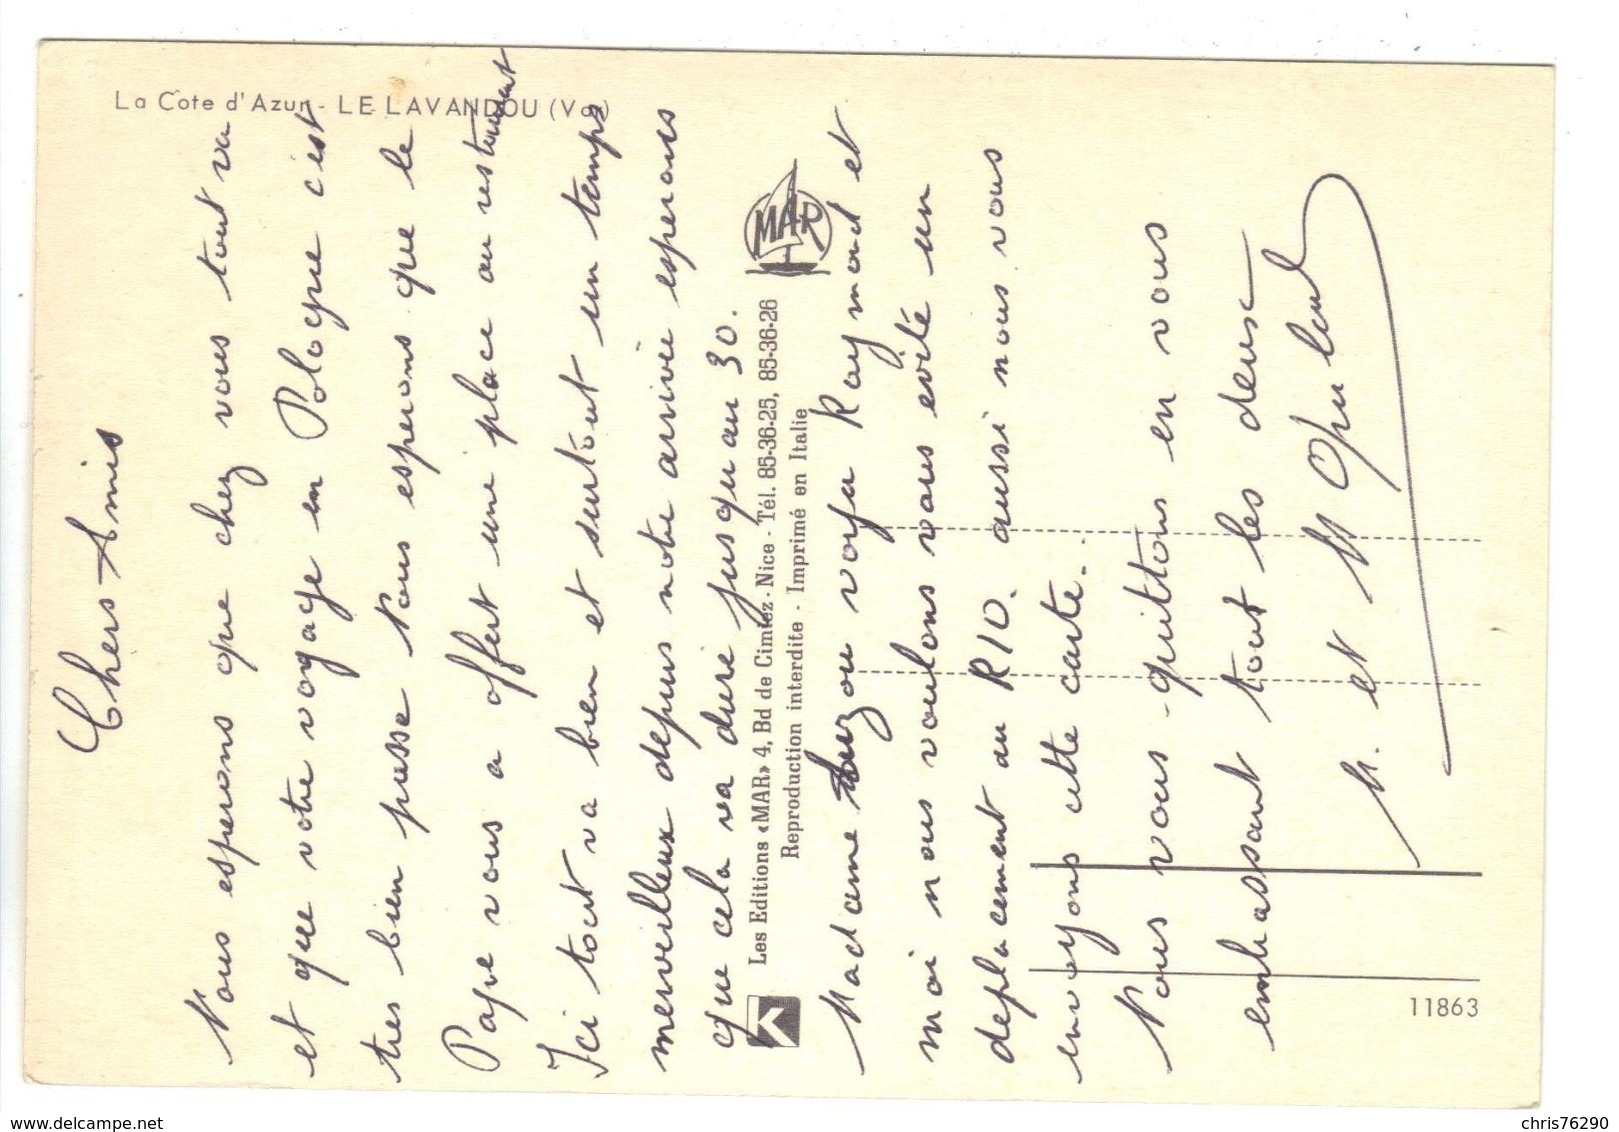 La Cote d'Azur - LE LAVANDOU (Var)
Chers Amis
Nous esperons que chez vous tout va
et que votre voyage en Pologne c'est
tres bien passe Nous esperons que le
Pape vous a offert une place au restaurant
Ici tout va bien et surtout un temps
merveilleux depuis notre arrivée esperons
que cela va durée jusqu'au 30.
MAR
Les Editions «MAR» 4, Bd de Cimiez - Nice - Tél. 85-36-25, 85-36-26
Reproduction interdite - Imprimé en Italie
K
Madame voya Raymond et
moi nous voulons vous evité un
deplacement au R10. aussi nous vous
envoyons cette carte.
Nous vous quittons en vous
embrassant tout les deux
M. et M
11863
delcampe.net
chris76290